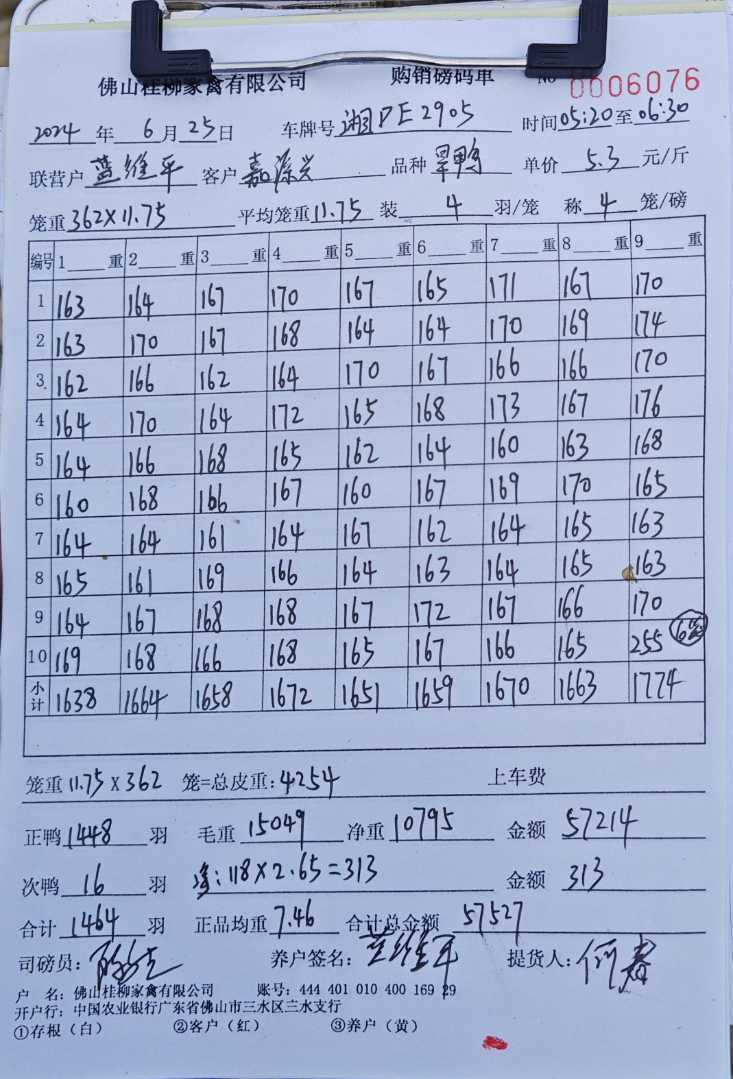 佛山桂柳家禽有限公司 购销磅码单 No 0006076
2024年6月25日 车牌号 湘DE2905 时间05:20至06:30
联营户 蓝维平 客户 嘉源兴 品种 旱鸭 单价 5.3 元/斤
笼重362×11.75 平均笼重11.75 装 4 羽/笼 称 4 笼/磅
编号 1 重 2 重 3 重 4 重 5 重 6 重 7 重 8 重 9 重
1 163 164 167 170 167 165 171 167 170
2 163 170 167 168 164 164 170 169 174
3 162 166 162 164 170 167 166 166 170
4 164 170 164 172 165 168 173 167 176
5 164 166 168 165 162 164 160 163 168
6 160 168 166 167 160 167 169 170 165
7 164 164 161 164 167 162 164 165 163
8 165 161 169 166 164 163 164 165 163
9 164 167 168 168 167 172 167 166 170
10 169 168 166 168 165 167 166 165 255 6笼
小计 1638 1664 1658 1672 1651 1659 1670 1663 1774
笼重 11.75×362 笼=总皮重:4254 上车费
正鸭1448羽 毛重 15049 净重 10795 金额 57214
次鸭 16 羽 净:118×2.65=313 金额 313
合计 1464 羽 正品均重 7.46 合计总金额 57527
司磅员: 养户签名:蓝维平 提货人:何春
户 名:佛山桂柳家禽有限公司 账号:444 401 010 400 169 29
开户行:中国农业银行广东省佛山市三水区三水支行
①存根(白) ②客户(红) ③养户(黄)